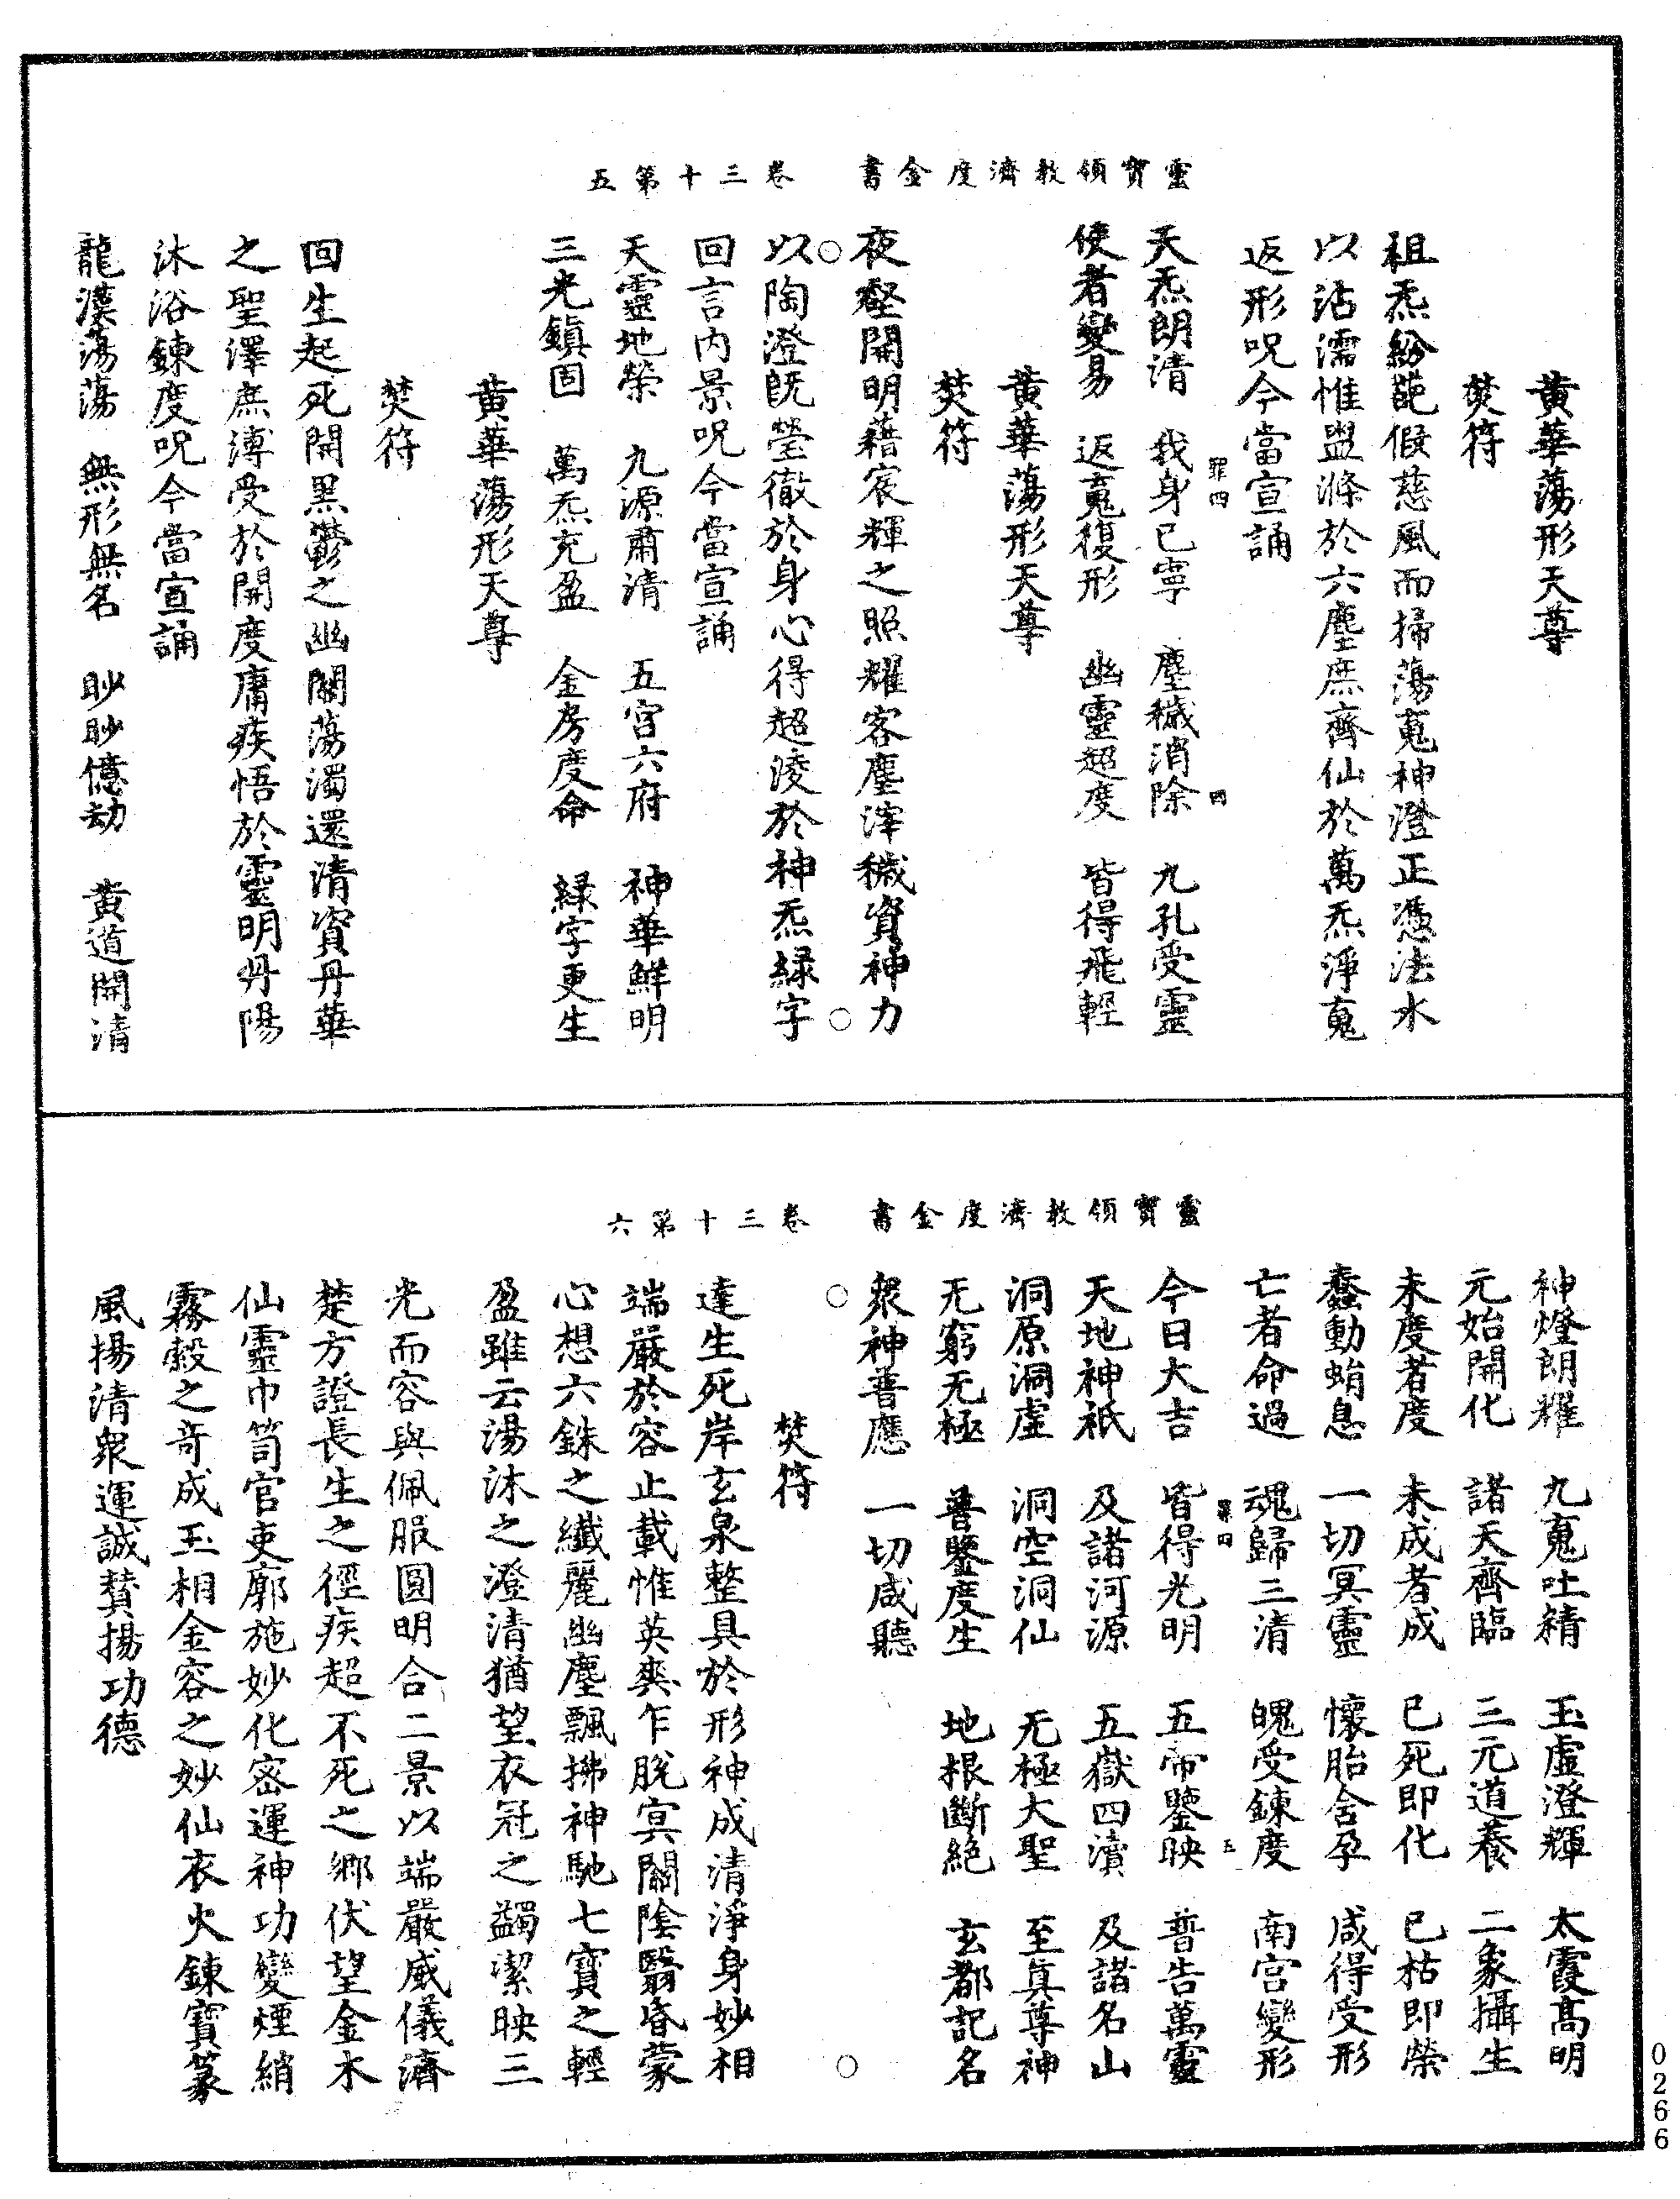 靈寶領教濟度金書 卷三十第五
黃華蕩形天尊
焚符
祖炁紛葩假慈風而掃蕩䰟神澄正憑法水
以沾濡惟盥滌於六塵庶齊仙於萬炁淨䰟
返形呪今當宣誦
罪四 四
天炁朗清 我身已寧 塵穢消除 九孔受靈
使者變易 返䰟復形 幽靈超度 皆得飛輕
黃華蕩形天尊
焚符
夜壑開明藉宸輝之照耀客塵滓穢資神力
以陶澄旣瑩徹於身心得超淩於神炁緑字
回言內景呪今當宣誦
天靈地榮 九源肅清 五宮六府 神華鮮明
三光鎮固 萬炁充盈 金房度命 緑字更生
黃華蕩形天尊
焚符
回生起死開黑鬱之幽關蕩濁還清資丹華
之聖澤庶溥受於開度庸疾悟於靈明丹陽
沐浴鍊度呪今當宣誦
龍漢蕩蕩 無形無名 眇眇億劫 黃道開清
靈寶領教濟度金書 卷三十第六
神燈朗耀 九䰟吐精 玉虛澄輝 太霞高明
元始開化 諸天齊臨 三元道養 二象攝生
未度者度 未成者成 已死即化 已枯即榮
蠢動蛸息 一切冥靈 懷胎含孕 咸得受形
亡者命過 魂歸三清 魄受鍊度 南宮變形
罪四 五
今日大吉 皆得光明 五帝鑒映 普告萬靈
天地神祇 及諸河源 五嶽四瀆 及諸名山
洞原洞虛 洞空洞仙 无極大聖 至真尊神
无窮无極 普鑒度生 地根斷絕 玄都記名
衆神普應 一切咸聽
焚符
達生死岸玄泉整具於形神成清淨身妙相
端嚴於容止載惟英爽乍脫冥關陰翳昏蒙
心想六銖之纖麗幽塵飄拂神馳七寶之輕
盈雖云湯沐之澄清猶望衣冠之蠲潔映三
光而容與佩服圓明合二景以端嚴威儀濟
楚方證長生之徑疾超不死之鄉伏望金木
仙靈巾笥官吏廓施妙化密運神功變煙綃
霧縠之奇成玉相金容之妙仙衣火鍊寶篆
風揚清衆運誠贊揚功德
0266